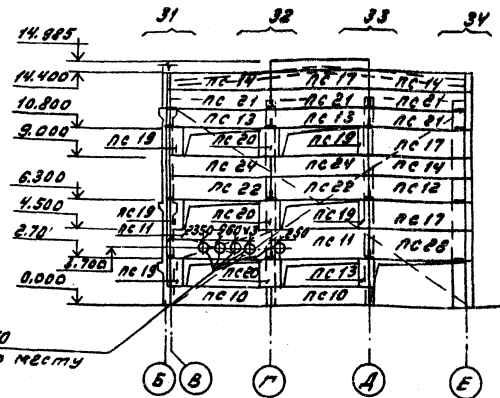 31 32 33 34
14.985
14.400
10.800
9.000
6.300
4.500
2.70
3.700
0.000
пс 14 пс 17 пс 14
пс 21 пс 21 пс 21
пс 13 пс 13 пс 21
пс 19 пс 20 пс 19 пс 17
пс 24 пс 24 пс 14
пс 22 пс 22 пс 12
пс 19 пс 20 пс 19 пс 17
пс 11 250
пс 11 пс 28
пс 19 пс 20 пс 13
пс 10 пс 10
месту
Б В Г Д Е